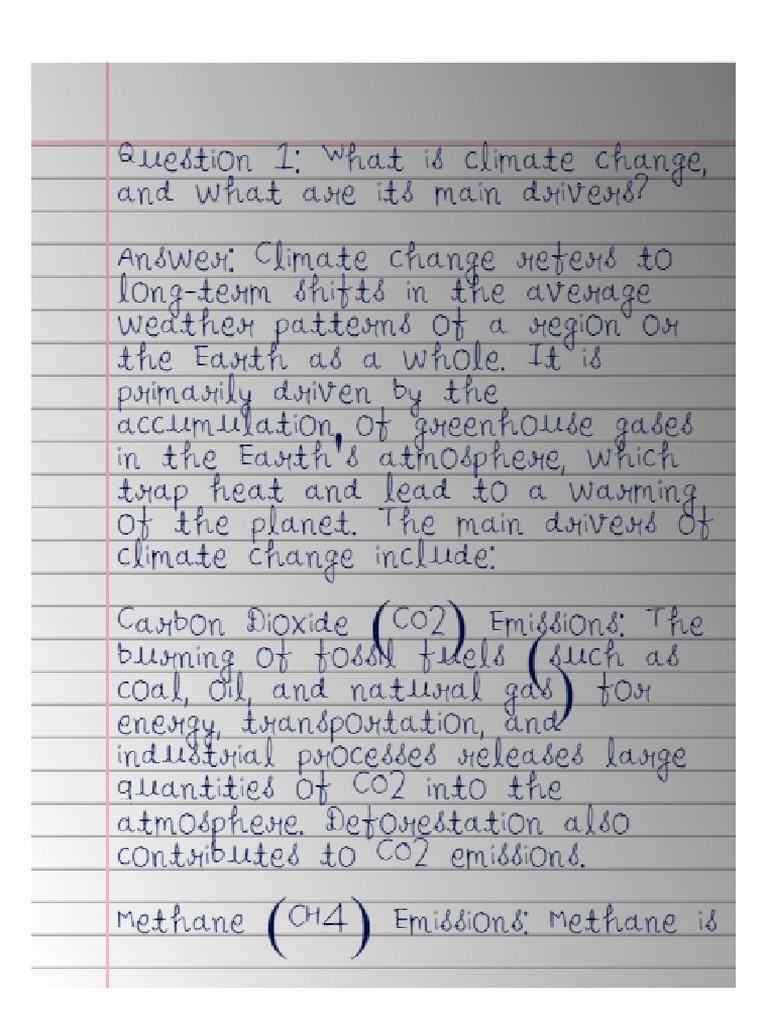 Question 1: What is climate change,
and what are its main drivers?
Answer: Climate change refers to
long-term shifts in the average
weather patterns of a region or
the Earth as a whole. It is
primarily driven by the
accumulation, of greenhouse gases
in the Earth's atmosphere, which
trap heat and lead to a warming
of the planet. The main drivers of
climate change include:
Carbon Dioxide (CO2) Emissions: The
burning of fossil fuels (such as
coal, oil, and natural gas) for
energy, transportation, and
industrial processes releases large
quantities of CO2 into the
atmosphere. Deforestation also
contributes to CO2 emissions.
Methane (CH4) Emissions: Methane is